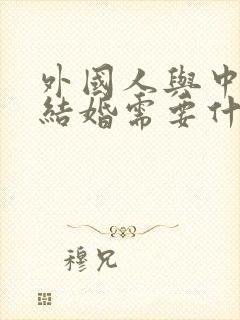 外國人與中
結婚需要什
穆兄